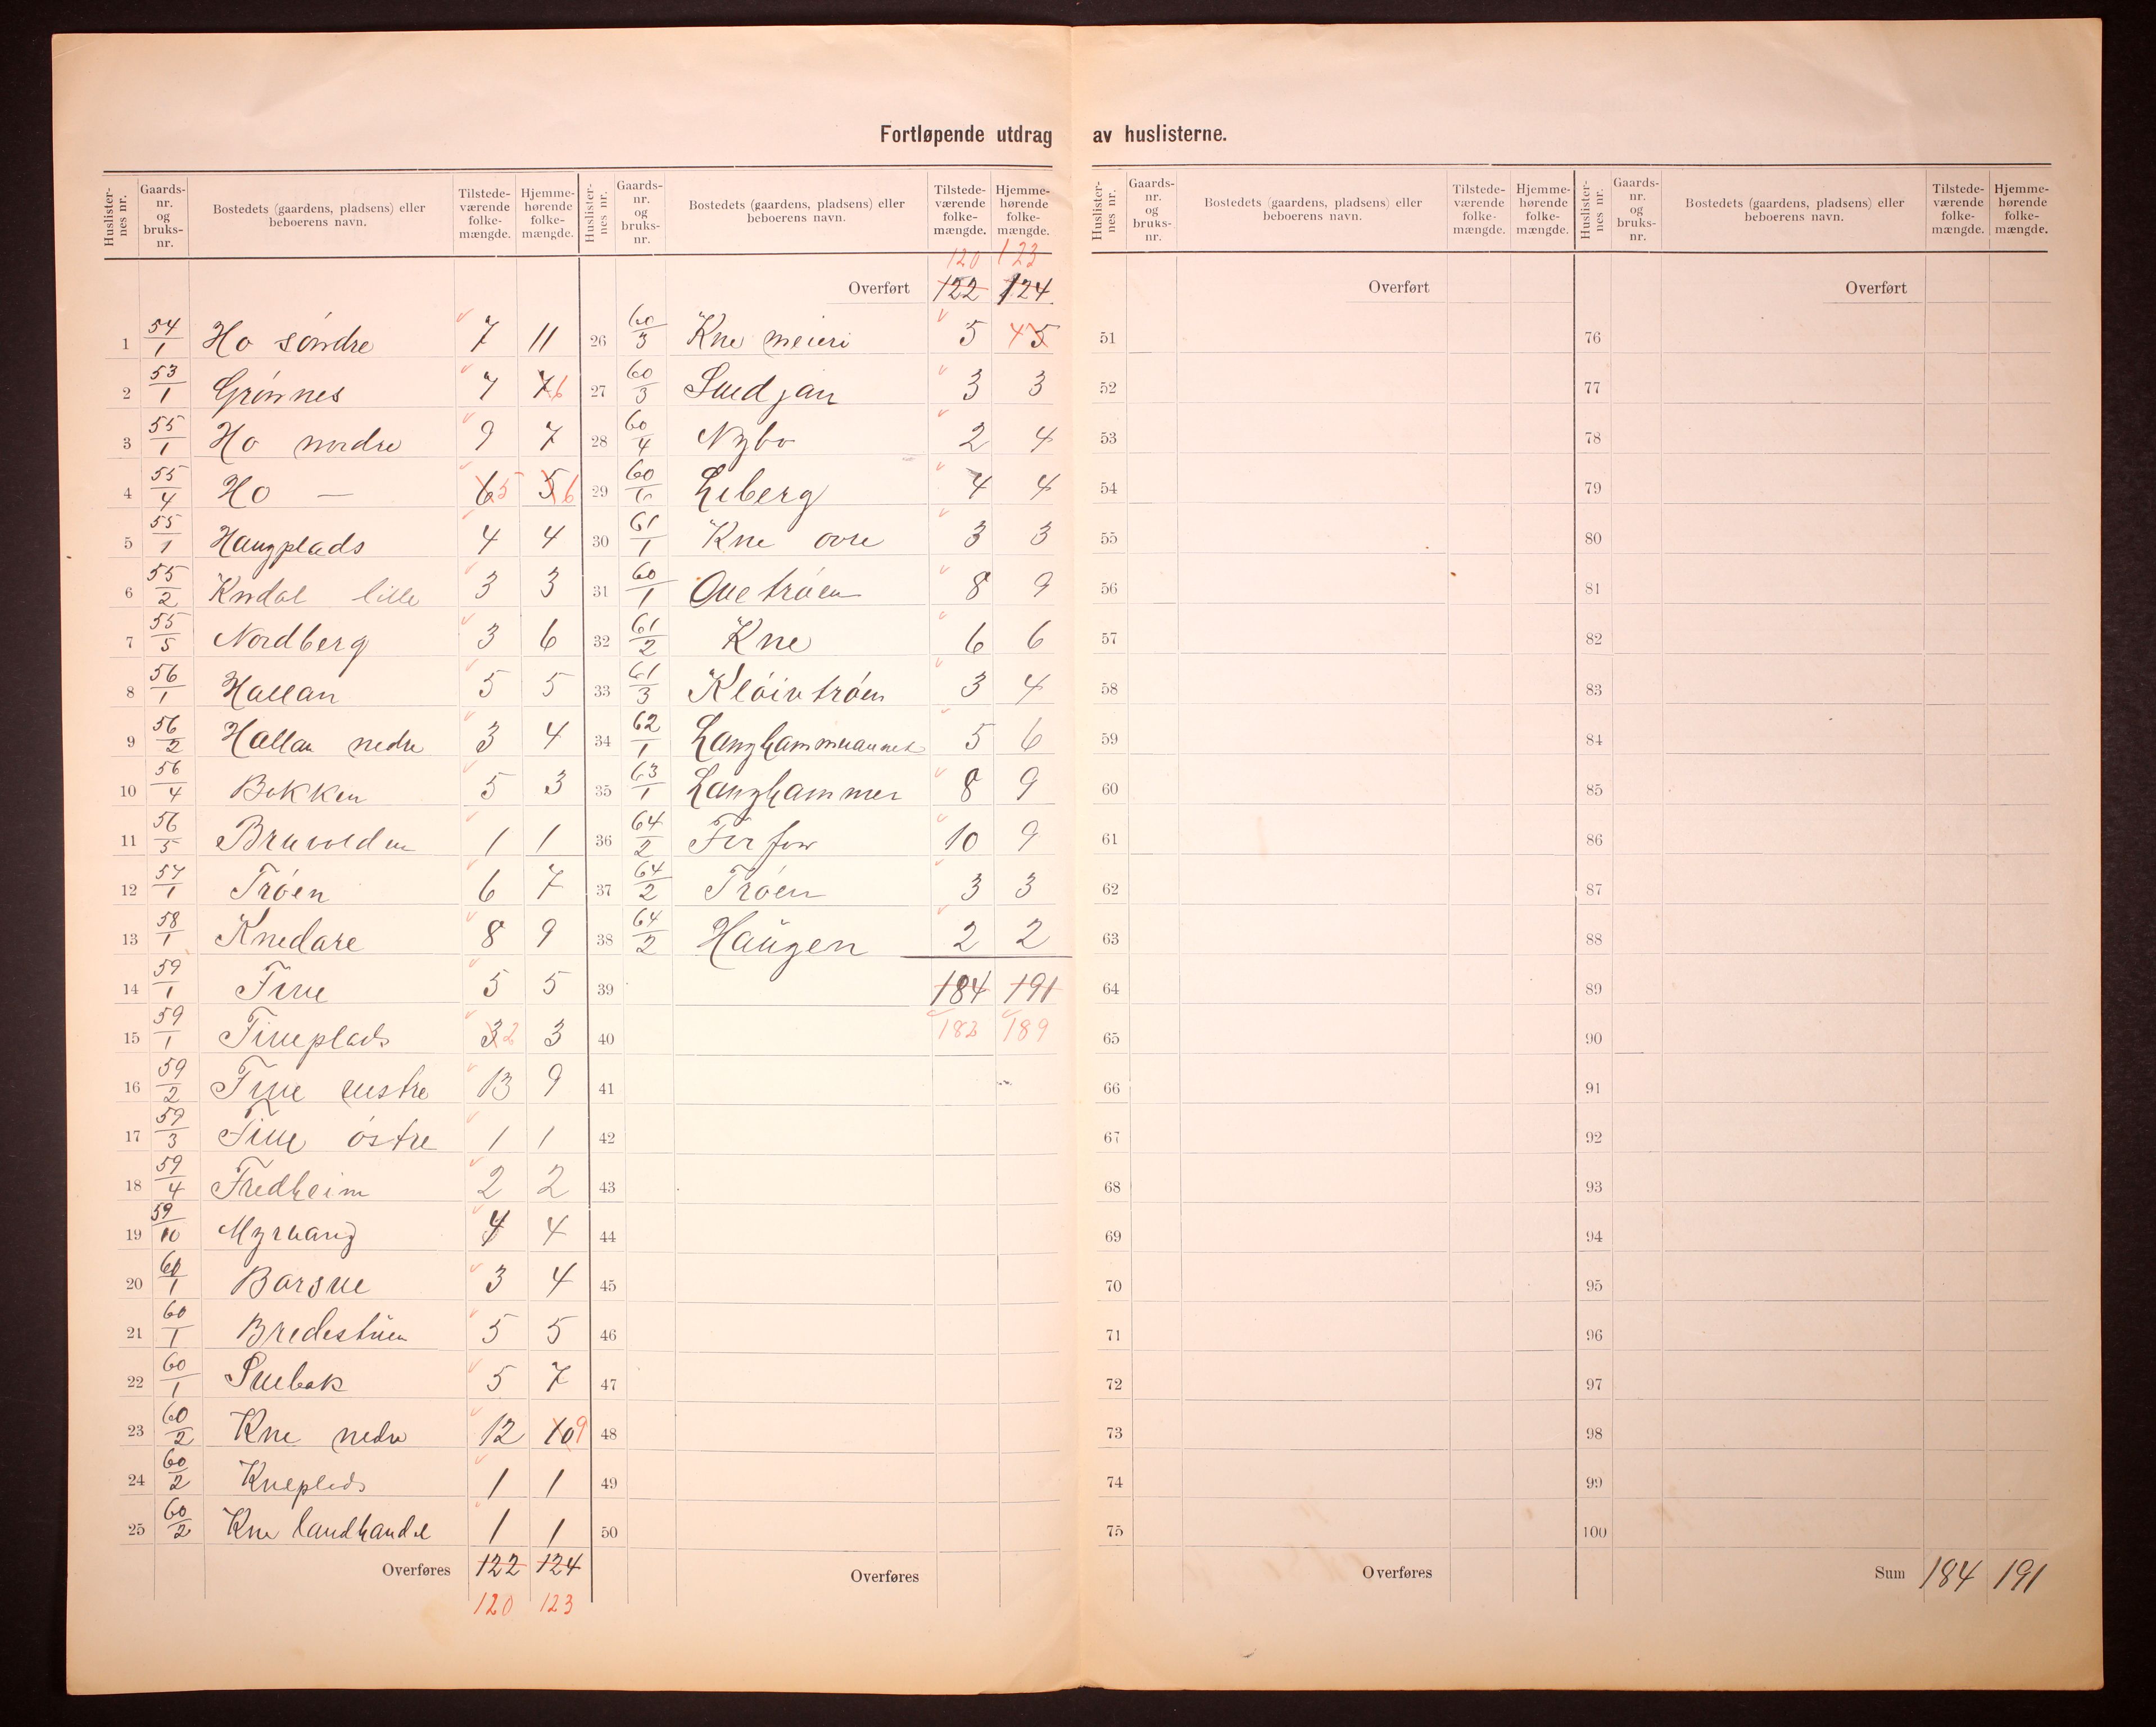 Fortløpende utdrag av huslisterne.
Huslisternes nr. | Gaards-nr. og bruks-nr. | Bostedets (gaardens, pladsens) eller beboerens navn. | Tilstede-værende folke-mængde. | Hjemme-hørende folke-mængde.
1 54/1 Ho söndre 7 11
2 53/1 Grönnes 7 7 6
3 55/1 Ho nordre 9 7
4 55/4 Ho — 6 5 5 6
5 55/1 Haugplads 4 4
6 55/2 lille 3 3
7 55/5 Nordberg 3 6
8 56/1 Hallan 5 5
9 56/2 Hallan nedre 3 4
10 56/4 Bakken 5 3
11 56/5 Bruvolden 1 1
12 57/1 Tröen 6 7
13 58/1 8 9
14 59/1 Five 5 5
15 59/1 Fiveplads 3 2 3
16 59/2 Five vestre 13 9
17 59/3 Five östre 1 1
18 59/4 Fredheim 2 2
19 59/10 Myrvang 4 4
20 60/1 3 4
21 60/1 Bredestuen 5 5
22 60/1 5 7
23 60/2 Kne nedre 12 10 9
24 60/2 Kneplads 1 1
25 60/2 Kne landhandel 1 1
Overføres 122 124
120 123
Huslisternes nr. | Gaards-nr. og bruks-nr. | Bostedets (gaardens, pladsens) eller beboerens navn. | Tilstede-værende folke-mængde. | Hjemme-hørende folke-mængde.
120 123
Overført 122 124
26 60/3 Kne meieri 5 4 5
27 60/3 3 3
28 60/4 Nybo 2 4
29 60/6 Leberg 4 4
30 61/1 Kne övre 3 3
31 60/1 8 9
32 61/2 Kne 6 6
33 61/3 Klöivtröen 3 4
34 62/1 5 6
35 63/1 Langhammer 8 9
36 64/2 10 9
37 64/2 Tröen 3 3
38 64/2 Haugen 2 2
39 184 191
40 182 189
41
42
43
44
45
46
47
48
49
50
Overføres
Huslisternes nr. | Gaards-nr. og bruks-nr. | Bostedets (gaardens, pladsens) eller beboerens navn. | Tilstede-værende folke-mængde. | Hjemme-hørende folke-mængde.
Overført
51
52
53
54
55
56
57
58
59
60
61
62
63
64
65
66
67
68
69
70
71
72
73
74
75
Overføres
Huslisternes nr. | Gaards-nr. og bruks-nr. | Bostedets (gaardens, pladsens) eller beboerens navn. | Tilstede-værende folke-mængde. | Hjemme-hørende folke-mængde.
Overført
76
77
78
79
80
81
82
83
84
85
86
87
88
89
90
91
92
93
94
95
96
97
98
99
100
Sum 184 191